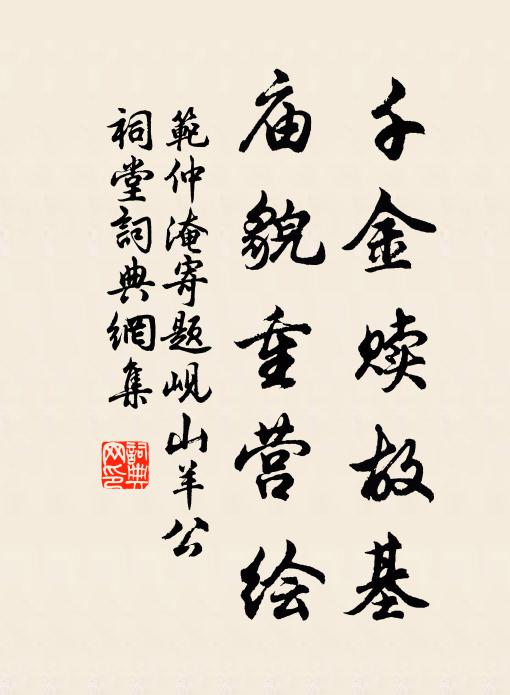 千金赎故基
庙貌重营绘
範仲淹寄题岘山羊公
祠堂詞典網集
詞典
网印